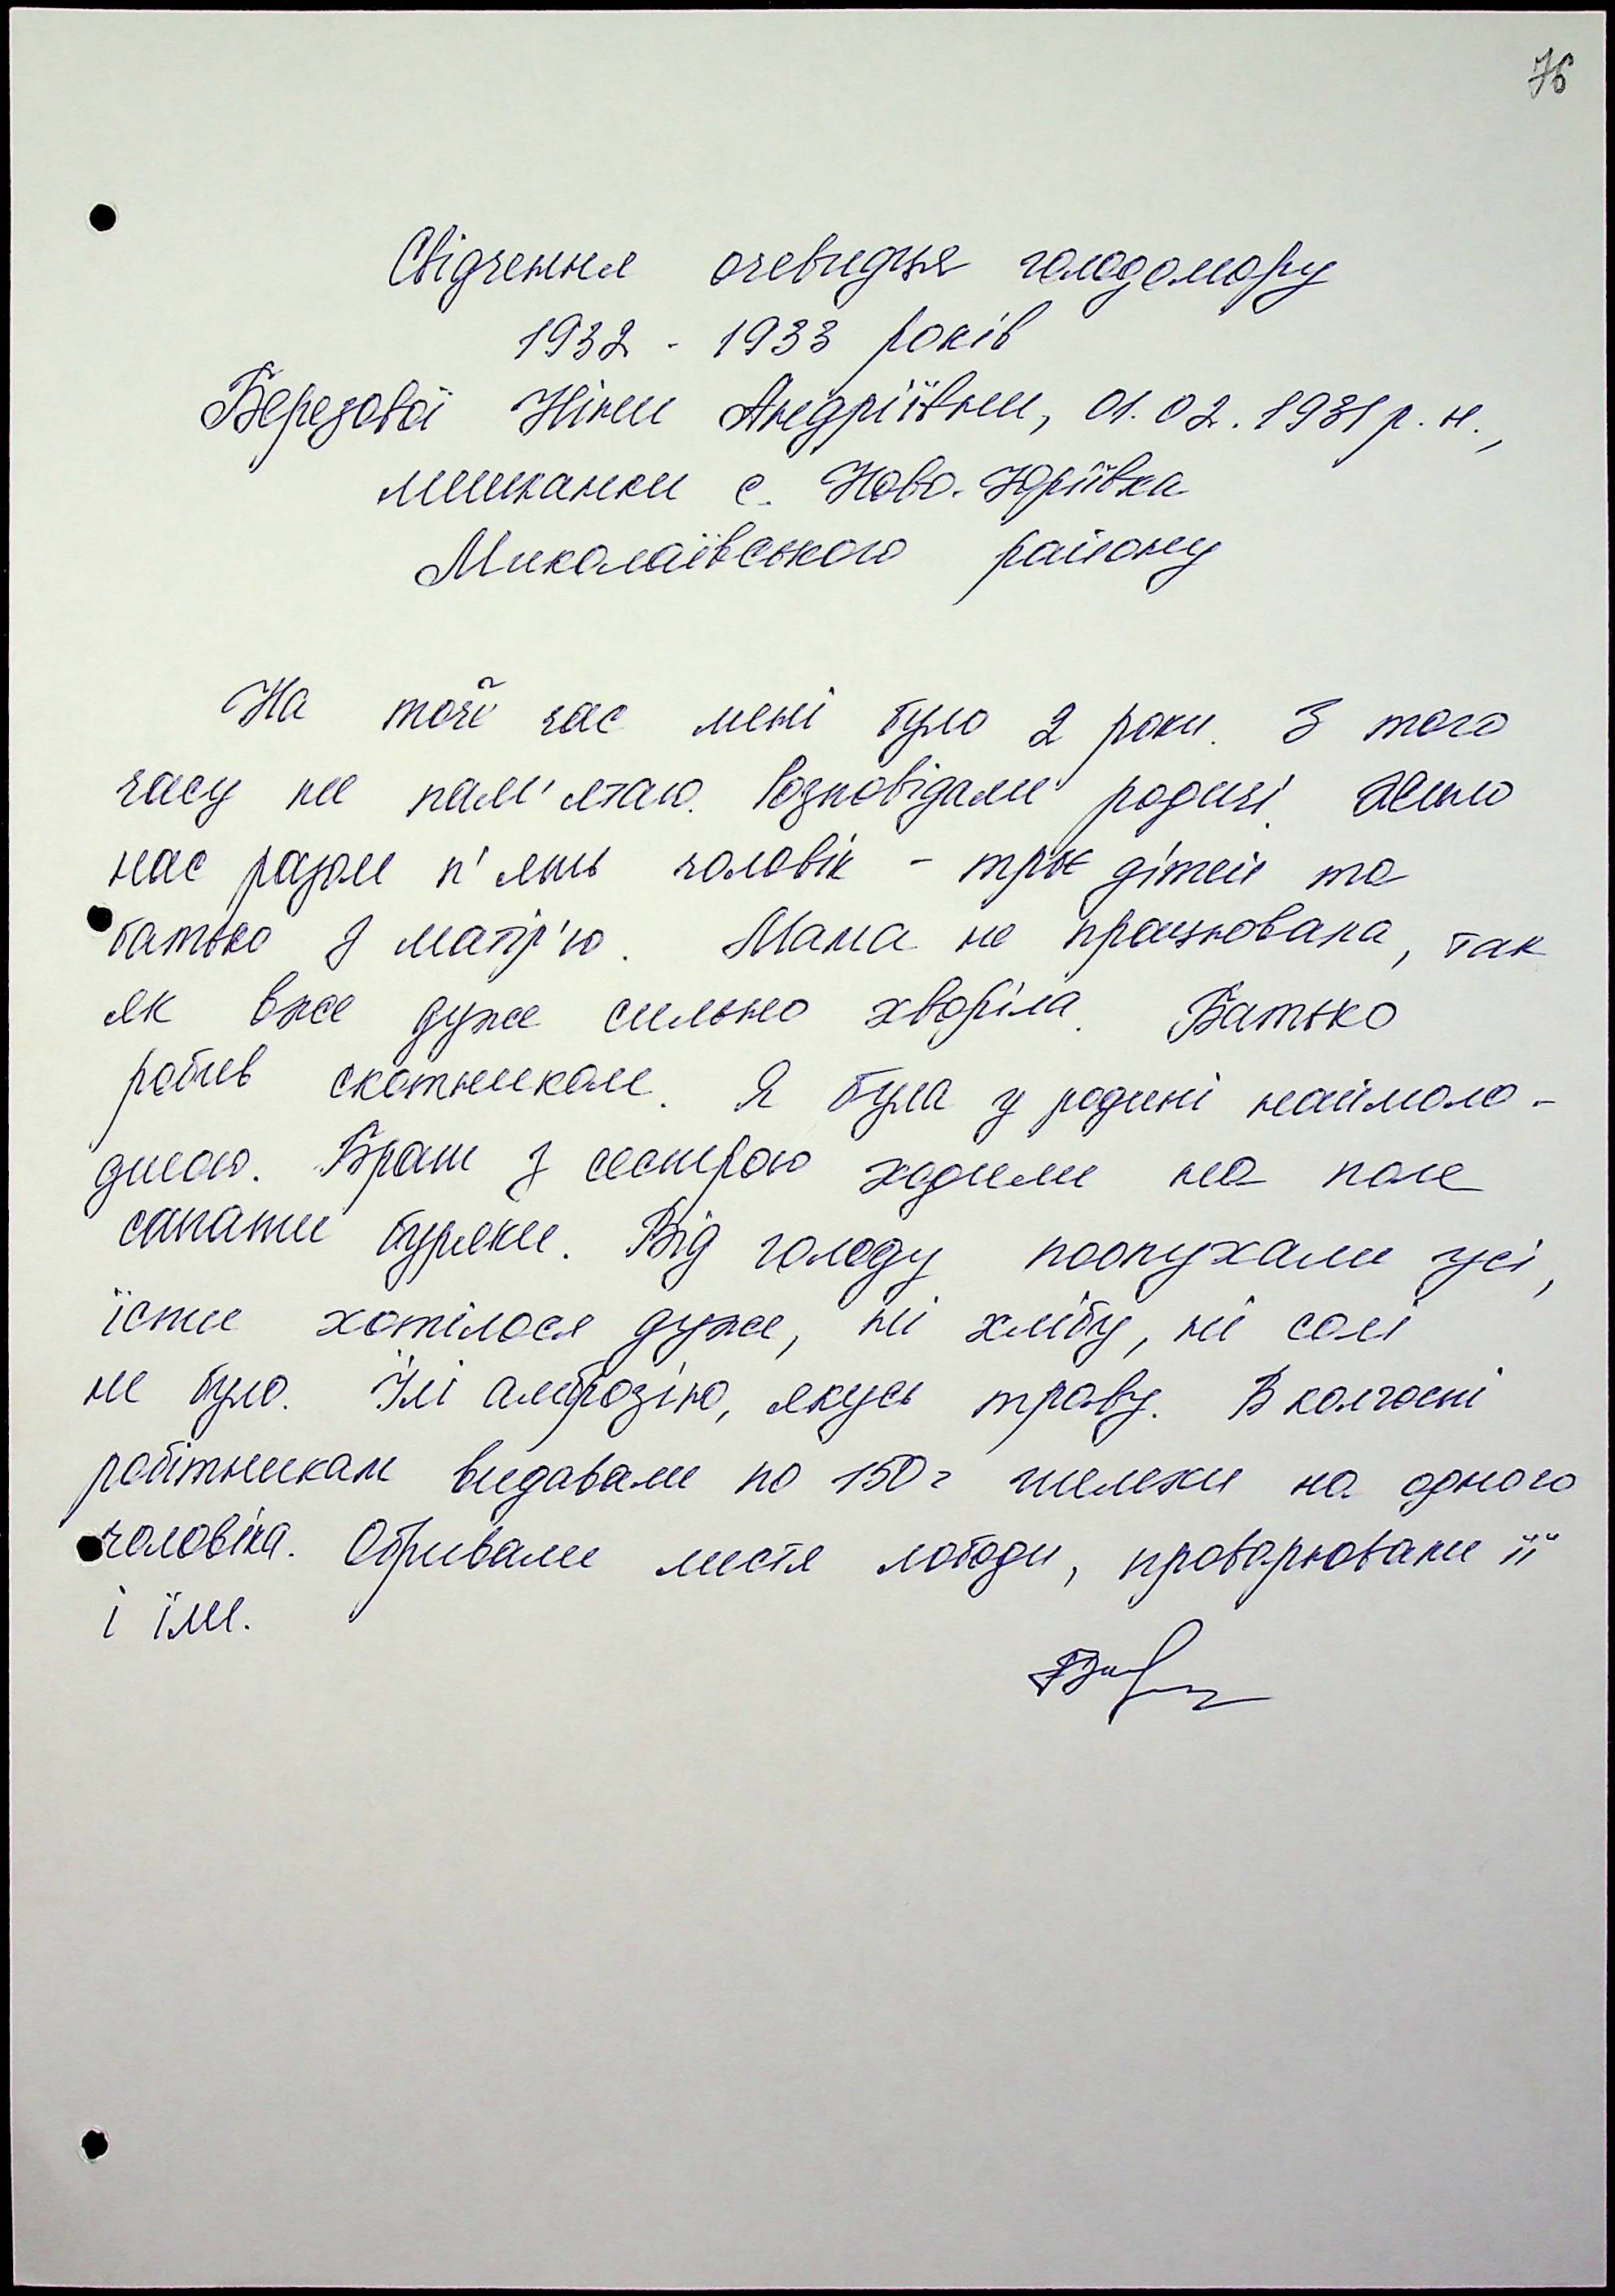 76
Свідчення очевидця голодомору
1932 - 1933 років
Березової Ніни Андріївни, 01.02.1931 р.н.,
мешканки с. Ново-Юріївка
Миколаївського району
На той час мені було 2 роки. З того
часу не пам'ятаю. Розповідали родичі. Жило
нас разом п'ять чоловік - троє дітей та
батько з матір'ю. Мама не працювала, так
як вже дуже сильно хворіла. Батько
робив скотником. Я була у родині наймоло-
дшою. Брат з сестрою ходили на поле
сапати буряки. Від голоду поопухали усі,
їсти хотілося дуже, ні хлібу, ні солі
не було. Їлі амброзію, якусь траву. В колгоспі
робітникам видавали по 150 г на одного
чоловіка. Обривали листя лободи, проварювали її
і їли.